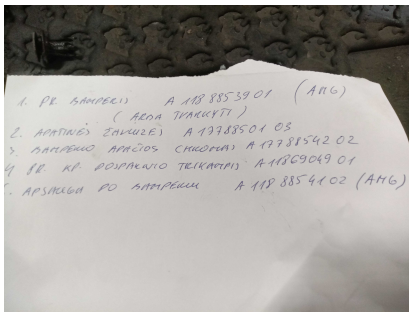 1. PR. BAMPERIS A 118 8853901 (AMG)
( ARBA TVARKYTI )
2. APATINĖS A 1778850103
3. BAMPERIO APAČIOS CHROMAS A 1778854202
4. PR. KP. POSPARNIO TRIKAMPIS A1186904901
APSAUGA PO BAMPERIU A 118 8854102 (AMG)